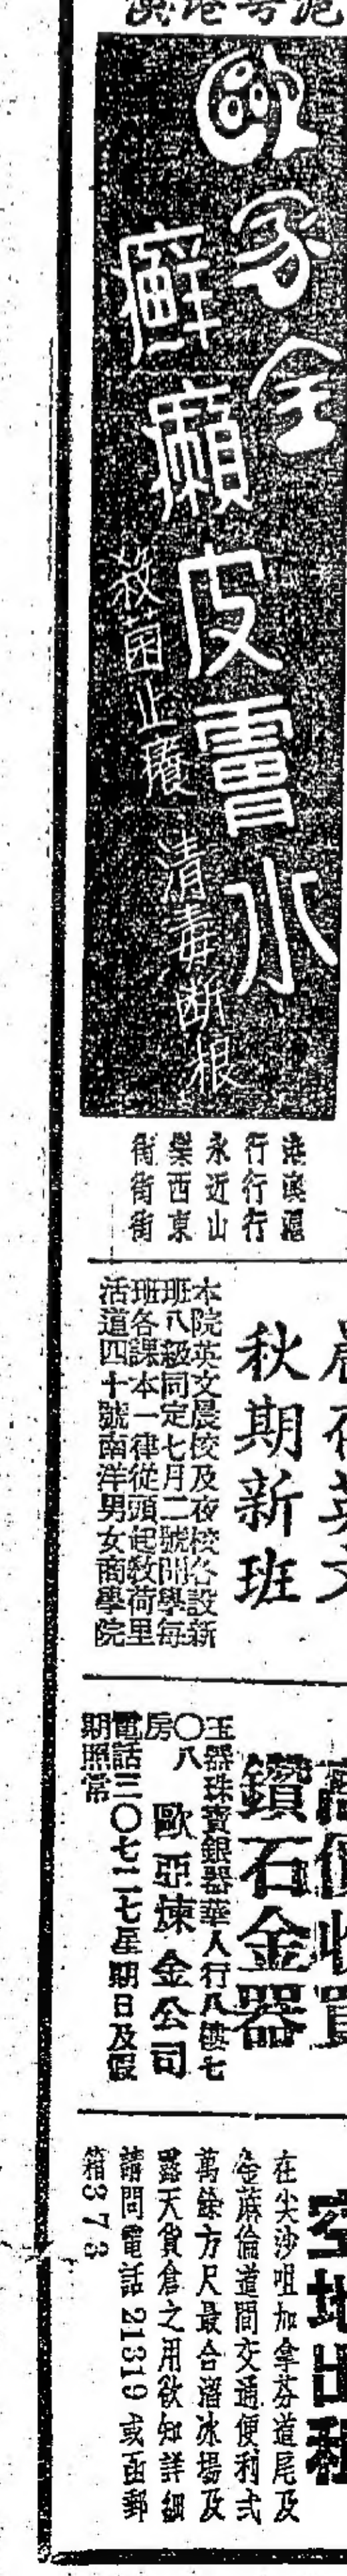 滬粵港澳
家全
皮膚水
癬癩
殺菌止癢
清毒斷根
港澳滬
行行行
永近山
樂西東
街街街
晨夜英文
秋期新班
本院英文晨校及夜校各設新
班八級同定七月二號開學每
班各課本一律從頭起教荷里
活道四十號南洋男女商學院
高價收買
鑽石金器
玉器珠寶銀器華人行八樓七
〇八房
歐亞煉金公司
電話三〇七二七星期日及假
期照常
空地出租
在尖沙咀加拿芬道尾及
金蔴倫道間交通便利式
萬餘方尺最合溜冰場及
露天貨倉之用欲知詳細
請問電話21319或函郵
箱373